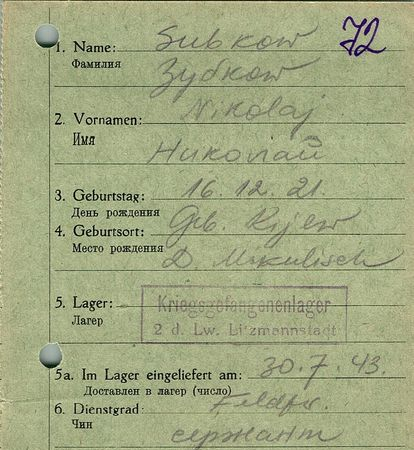 72
1. Name: Subkow
Фамилия Зубков
2. Vornamen: Nikolaj
Имя Николай
3. Geburtstag: 16.12.21.
День рождения
4. Geburtsort: Geb. Kijew
Место рождения D. Mikulisch
5. Lager: Kriegsgefangenenlager
Лагер 2 d. Lw. Litzmannstadt
5a. Im Lager eingeliefert am: 30.7.43.
Доставлен в лагер (число)
6. Dienstgrad: Feldw.
Чин сержант